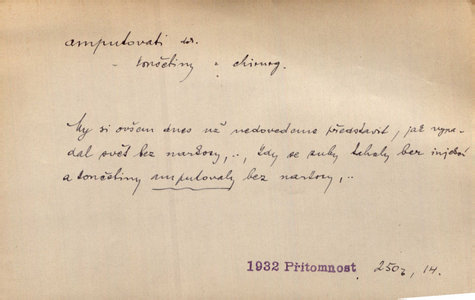 amputovati dok.
- končetiny " chirurg.
My si ovšem dnes už nedovedeme představit, jak vypa-
dal svět bez narkosy, .., kdy se zuby trhaly bez injekcí
a končetiny amputovaly bez narkosy, ..
1932 Přítomnost 250, 14.